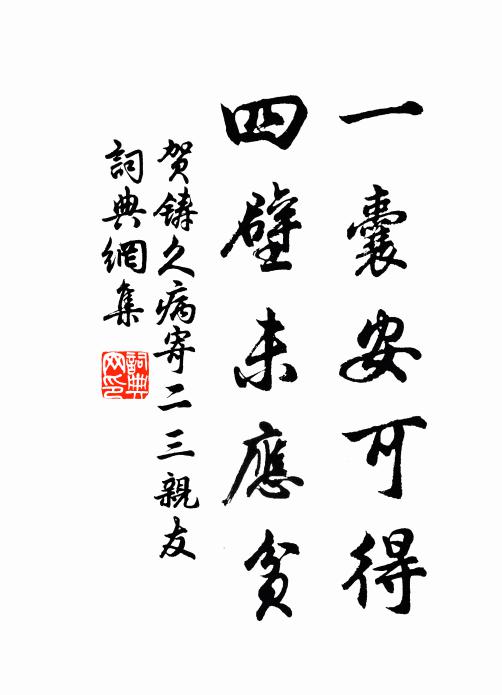 一囊安可得
四壁未應貧
賀鑄久病寄二三親友
詞典網集
詞典網印